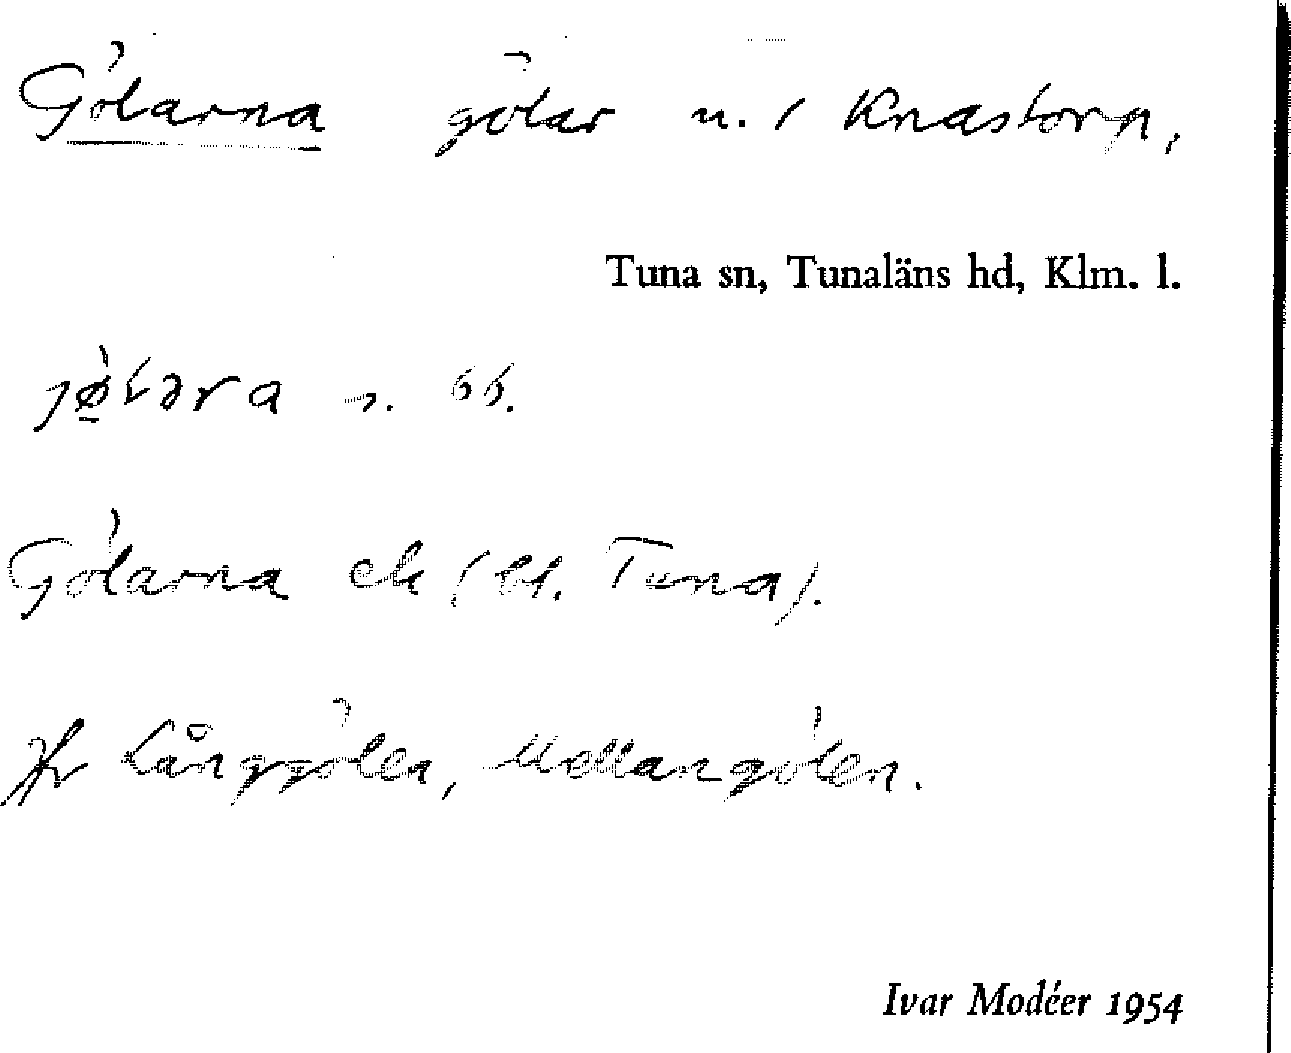 Gölarna gölar u. / Knastorp,
Tuna sn, Tunaläns hd, Klm. l.
Gölarna ek (bl. Tuna).
Jfr Långgölen, Mellangölen.
Ivar Modéer 1954